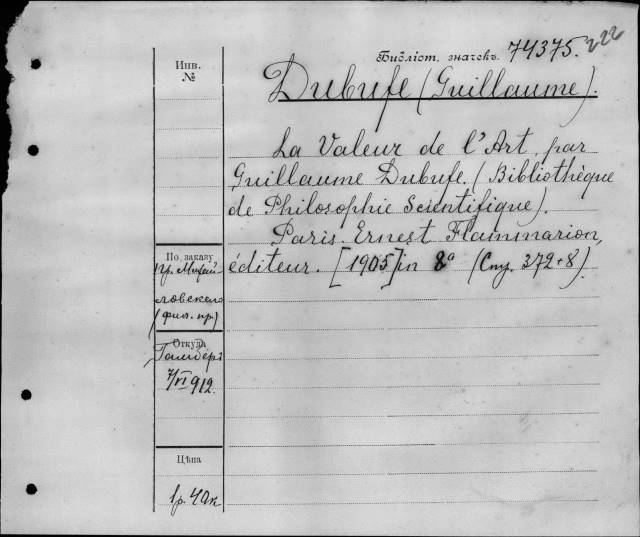 Инв.
№
Библіот. значекъ. 74375. 222
Dubufe (Guillaume).
La Valeur de l'Art, par
Guillaume Dubufe. (Bibliothèque
de Philosophie Scientifique).
Paris. Ernest Flammarion,
éditeur. [1905] in 8° (Стр. 372+8).
По заказу
пр. Михай
ловскаго
(фил. пр)
Откуда
7/VI 912.
Цѣна
1р. 40к